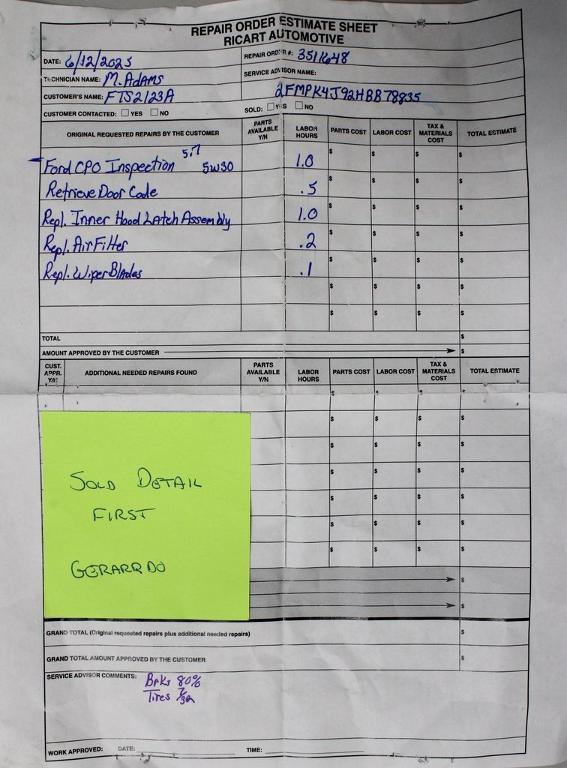 REPAIR ORDER ESTIMATE SHEET
RICART AUTOMOTIVE
DATE: 6/12/2025 REPAIR ORDER #: 3511648
TECHNICIAN NAME: M. Adams SERVICE ADVISOR NAME:
CUSTOMER'S NAME: FTS2123A 2FMPK4J92HBB78835
CUSTOMER CONTACTED: YES NO SOLD: YES NO
ORIGINAL REQUESTED REPAIRS BY THE CUSTOMER PARTS AVAILABLE Y/N LABOR HOURS PARTS COST LABOR COST TAX & MATERIALS COST TOTAL ESTIMATE
Ford CPO Inspection 5.7 5W30 1.0 $ $ $ $
Retrieve Door Code .5 $ $ $ $
Repl. Inner Hood Latch Assembly 1.0 $ $ $ $
Repl. Air Filter .2 $ $ $ $
Repl. Wiper Blades .1 $ $ $ $
$ $ $ $
TOTAL $
AMOUNT APPROVED BY THE CUSTOMER $
CUST. APPR. Y/N ADDITIONAL NEEDED REPAIRS FOUND PARTS AVAILABLE Y/N LABOR HOURS PARTS COST LABOR COST TAX & MATERIALS COST TOTAL ESTIMATE
$ $ $ $
$ $ $ $
$ $ $ $
$ $ $ $
$ $ $ $
$ $ $ $
$ $ $ $
SOLD DETAIL
FIRST
GERARRDO
$
$
GRAND TOTAL (Original requested repairs plus additional needed repairs) $
GRAND TOTAL AMOUNT APPROVED BY THE CUSTOMER $
SERVICE ADVISOR COMMENTS: Brks 80%
Tires 7/32
WORK APPROVED: DATE: TIME: